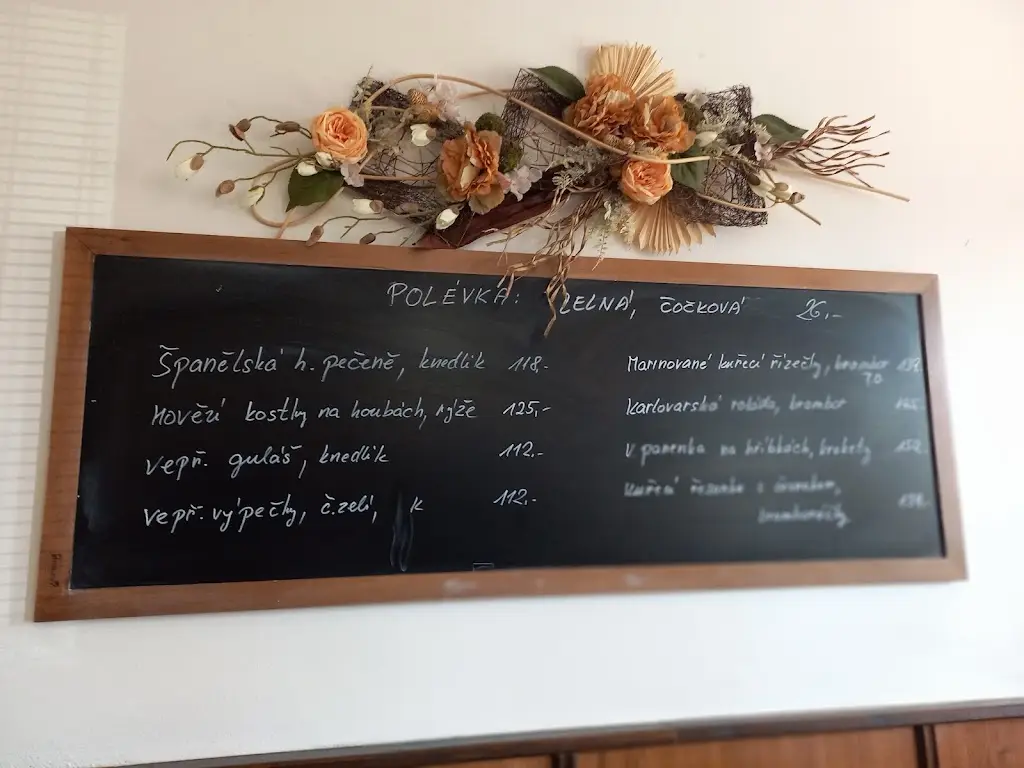 POLÉVKA: ZELNÁ, ČOČKOVÁ 26,-
Španělská h. pečeně, knedlík 118,-
Hovězí kostky na houbách, rýže 125,-
Vepř. guláš, knedlík 112,-
Vepř. výpečky, č.zelí, K 112,-
Marinované kuřecí řízečky, brambor
Karlovarská roláda, brambor
V panenka na hříbkách, krokety
Kuřecí